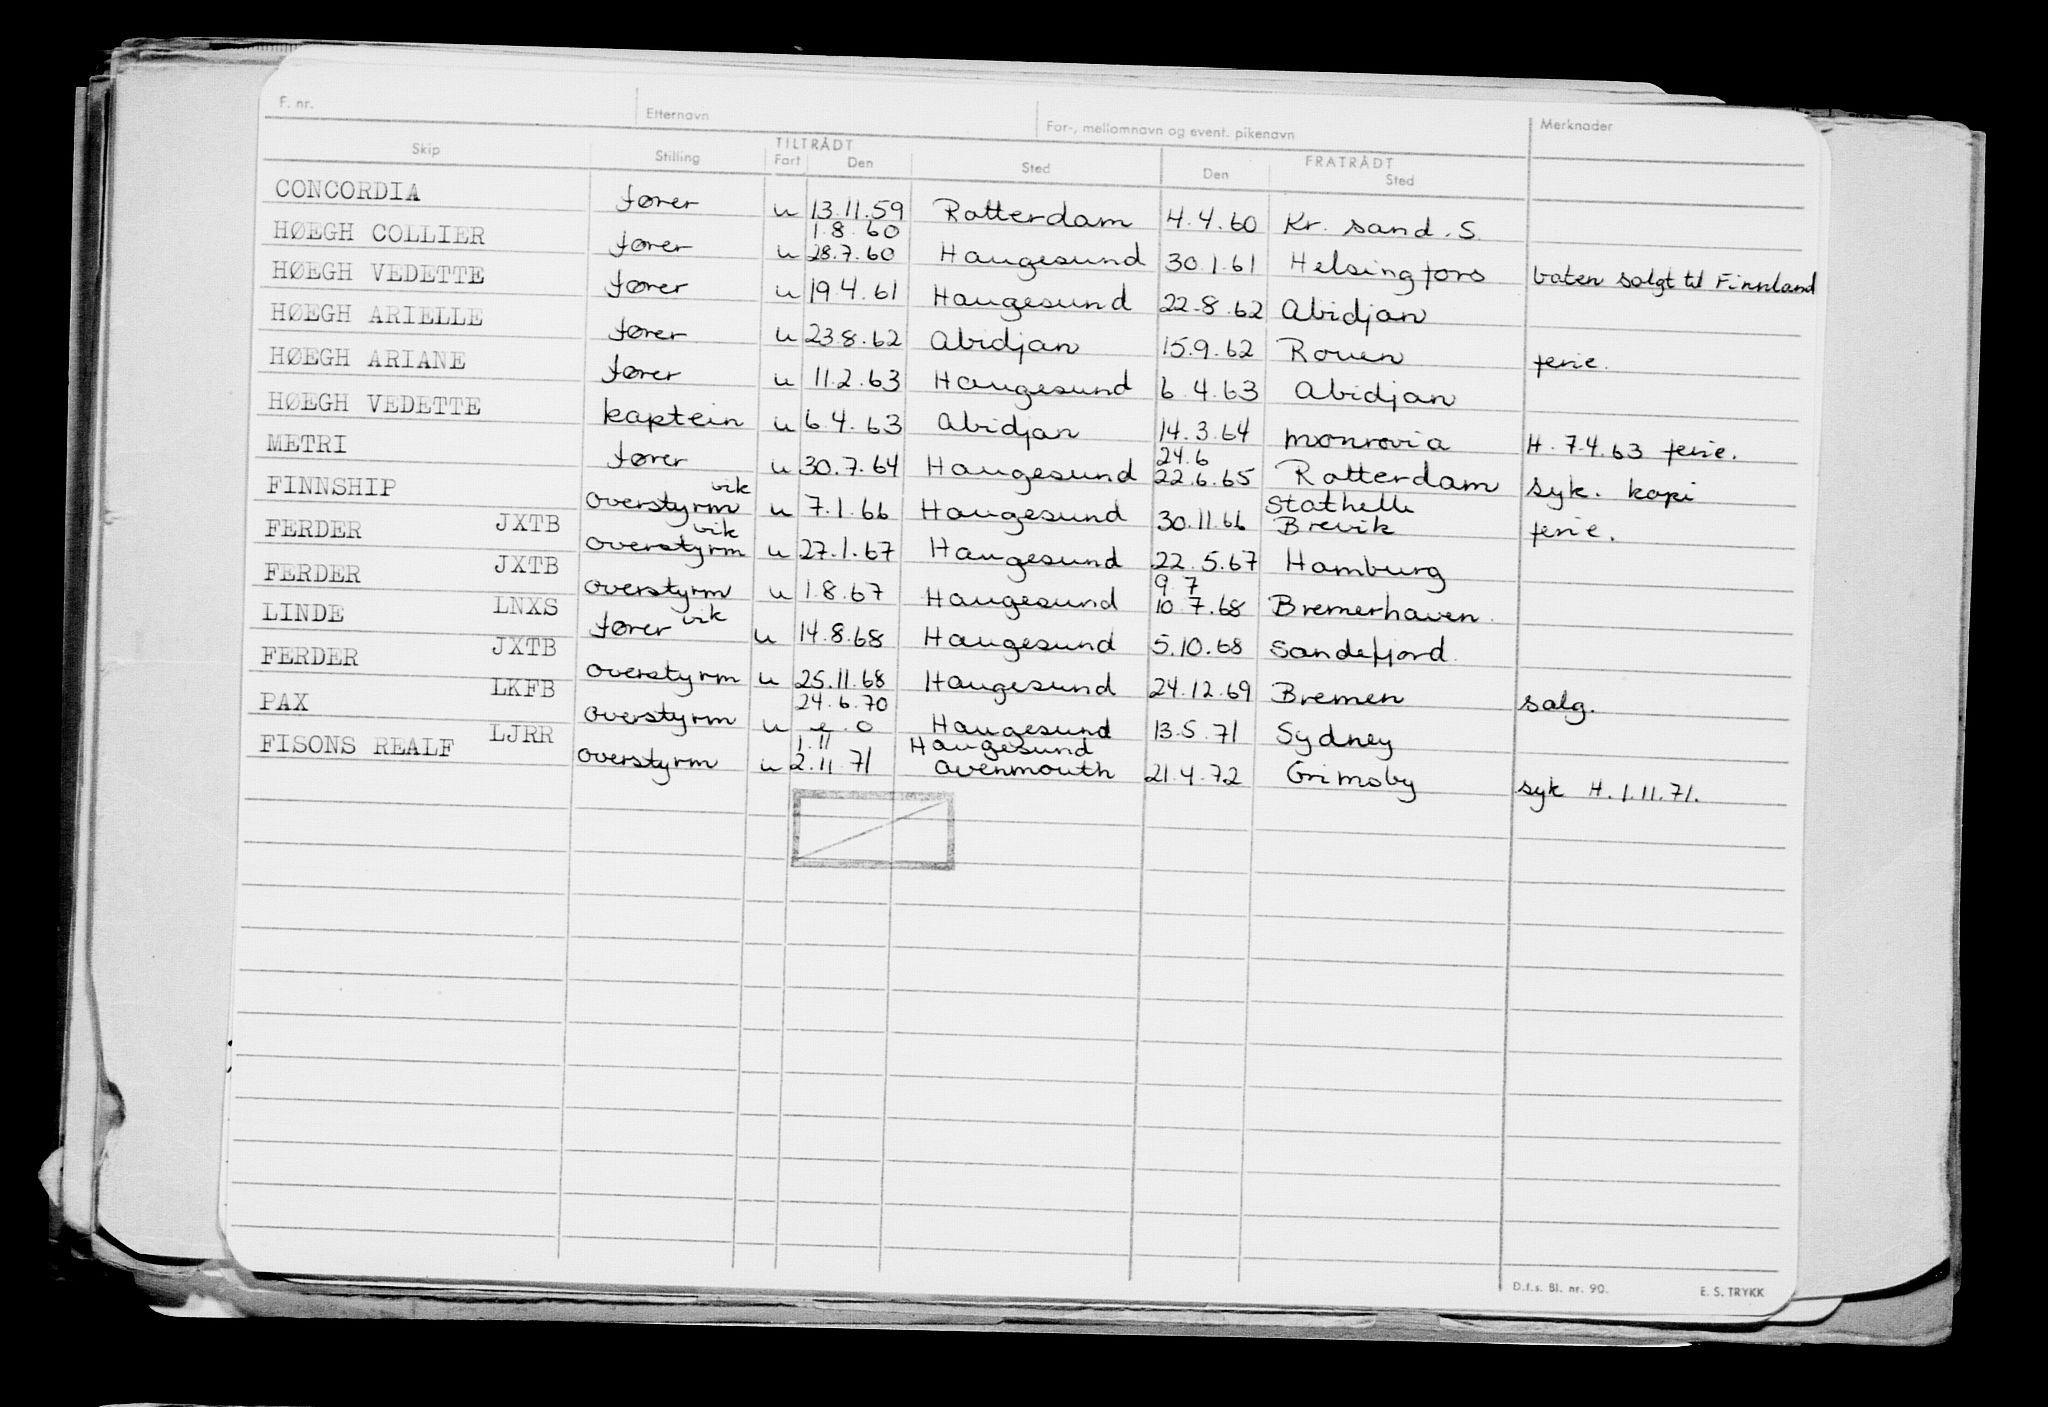 F. nr. Etternavn For-, mellomnavn og event. pikenavn Merknader
TILTRÅDT FRATRÅDT
Skip Stilling Fart Den Sted Den Sted
CONCORDIA fører u 13.11.59 Rotterdam 4.4.60 Kr. sand. S.
1.8.60
HØEGH COLLIER fører u 28.7.60 Haugesund 30.1.61 Helsingfors båten solgt til Finnland
HØEGH VEDETTE fører u 19.4.61 Haugesund 22.8.62 Abidjan
HØEGH ARIELLE fører u 23.8.62 Abidjan 15.9.62 Rouen ferie.
HØEGH ARIANE fører u 11.2.63 Haugesund 6.4.63 Abidjan
HØEGH VEDETTE kaptein u 6.4.63 Abidjan 14.3.64 Monrovia H. 7.4.63 ferie.
24.6
METRI fører u 30.7.64 Haugesund 22.6.65 Rotterdam syk. kopi
vik Stathelle
FINNSHIP overstyrm u 7.1.66 Haugesund 30.11.66 Brevik ferie.
vik
FERDER JXTB overstyrm u 27.1.67 Haugesund 22.5.67 Hamburg
9.7
FERDER JXTB overstyrm u 1.8.67 Haugesund 10.7.68 Bremerhaven.
vik
LINDE LNXS fører u 14.8.68 Haugesund 5.10.68 Sandefjord.
FERDER JXTB overstyrm u 25.11.68 Haugesund 24.12.69 Bremen salg.
24.6.70
PAX LKFB overstyrm u Haugesund 13.5.71 Sydney
1.11 Haugesund
FISONS REALF LJRR overstyrm u 2.11.71 Avenmouth 21.4.72 Grimsby syk H. 1.11.71.
D.f.s. Bl. nr. 90. E. S. TRYKK